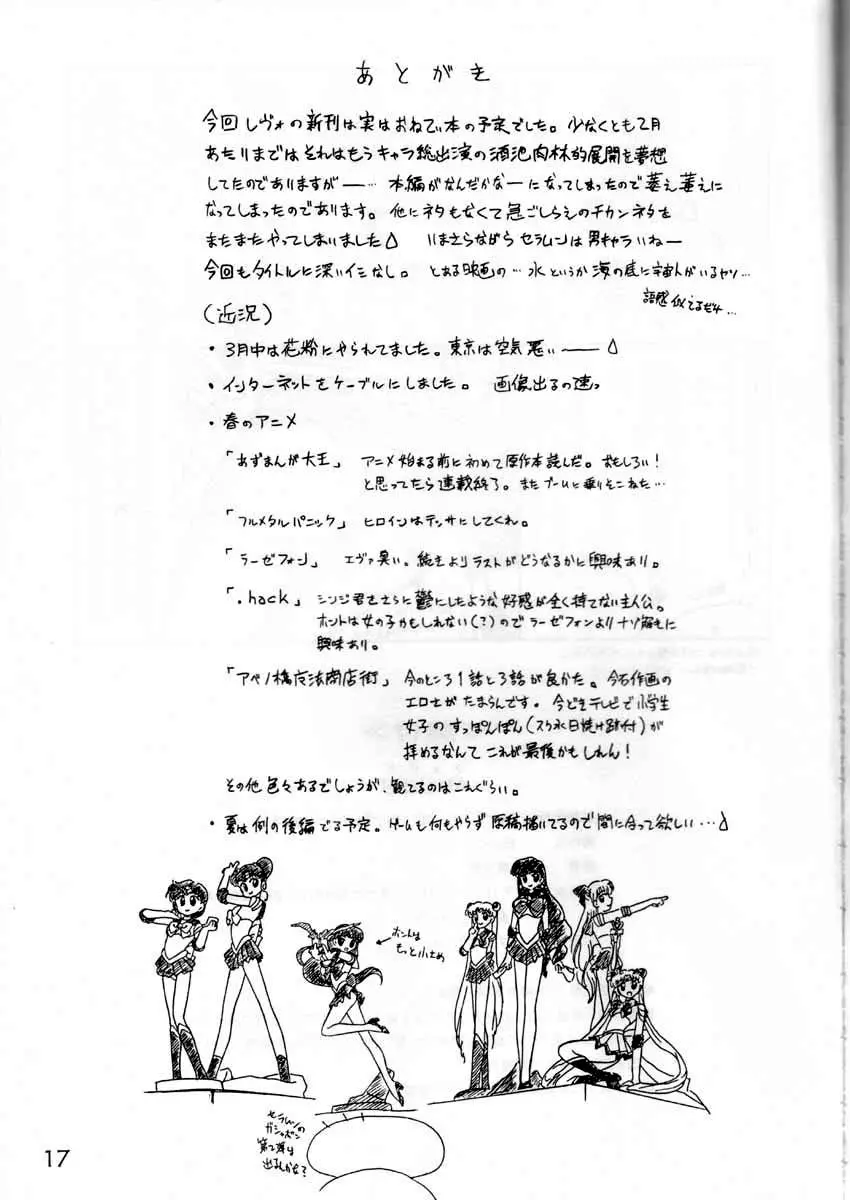 あとがき
今回レヴォの新刊は実はおねてぃ本の予定でした。少なくとも2月
あたりまではそれはもうキャラ総出演の酒池肉林的展開を夢想
してたのでありますが――… 本編がなんだかなーになってしまったので萎え萎えに
なってしまったのであります。他にネタもなくて急ごしらえのチカンネタを
またまたやってしまいました いまさらながらセラムンは男キャラいねー
今回もタイトルに深いイミなし。 とある映画の… 水というか海の底に宇宙人がいるヤツ…
語感似てるだけ…
(近況)
・3月中は花粉にやられてました。東京は空気悪い――
・インターネットをケーブルにしました。 画像出るの速っ
・春のアニメ
「あずまんが大王」 アニメ始まる前に初めて原作本読んだ。おもしろい!
と思ってたら連載終了。またブームに乗りそこねた…
「フルメタルパニック」 ヒロインはテッサにしてくれ。
「ラーゼフォン」 エヴァ臭い。続きよりラストがどうなるかに興味あり。
「.hack」 シンジ君をさらに鬱にしたような好感が全く持てない主人公。
ホントは女の子かもしれない(?)のでラーゼフォンよりナゾ解きに
興味あり。
「アベノ橋魔法商店街」 今のところ1話と3話が良かた。今石作画の
エロさがたまらんです。今どきテレビで小学生
女子のすっぽんぽん(スク水日焼け跡付)が
拝めるなんてこれが最後かもしれん!
その他色々あるでしょうが、観てるのはこれぐらい。
・夏は例の後編でる予定。ゲームも何もやらず原稿描いてるので間に合って欲しい…
ホントは
もっと小さめ
セラムンの
ガシャポン
第2弾は
出んかな?
17